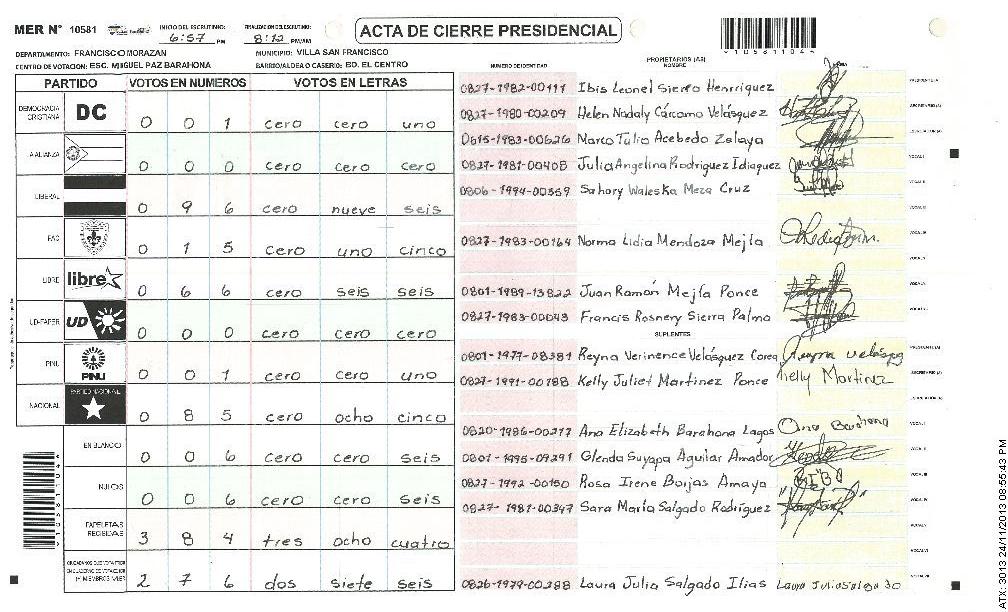 MER N° 10581 INICIO DEL ESCRUTINIO: 6:57 PM FINALIZACION DEL ESCRUTINIO: 8:12 PM/AM ACTA DE CIERRE PRESIDENCIAL
DEPARTAMENTO: FRANCISCO MORAZAN MUNICIPIO: VILLA SAN FRANCISCO
CENTRO DE VOTACION: ESC. MIGUEL PAZ BARAHONA BARRIO/ALDEA O CASERIO: BO. EL CENTRO
PARTIDO VOTOS EN NUMEROS VOTOS EN LETRAS
DEMOCRACIA CRISTIANA DC 0 0 1 cero cero uno
ALIANZA 0 0 0 cero cero cero
LIBERAL 0 9 6 cero nueve seis
PAC 0 1 5 cero uno cinco
LIBRE libre 0 6 6 cero seis seis
UD-FAPER UD 0 0 0 cero cero cero
PINU PINU 0 0 1 cero cero uno
NACIONAL PARTIDO NACIONAL 0 8 5 cero ocho cinco
EN BLANCO 0 0 6 cero cero seis
NULOS 0 0 6 cero cero seis
PAPELETAS RECIBIDAS 3 8 4 tres ocho cuatro
2 7 6 dos siete seis
NUMERO DE IDENTIDAD PROPIETARIOS (AS)
NOMBRE
0827-1982-00111 Ibis Leonel Sierra Henriquez
0827-1980-00209 Helen Nadaly Cárcamo Velásquez
0615-1983-00626 Marco Tulio Acebedo Zelaya
0827-1981-00408 Julia Angelina Rodriguez Idiaquez
0806-1994-00369 Sahory Waleska Meza Cruz
0827-1983-00164 Norma Lidia Mendoza Mejía
0801-1989-13822 Juan Ramón Mejía Ponce
0827-1983-00043 Francis Rosnery Sierra Palma
SUPLENTES
0801-1977-08381 Reyna Verinence Velásquez Corea Reyna Velásq
0827-1991-00188 Kelly Juliet Martinez Ponce Kelly Martinez
0820-1986-00277 Ana Elizabeth Barahona Lagos Ana Barahona
0801-1995-09291 Glenda Suyapa Aguilar Amador
0827-1992-00150 Rosa Irene Borjas Amaya
0827-1981-00347 Sara María Salgado Rodríguez
0826-1979-00288 Laura Julia Salgado Ilias
ATX-3013 24/11/2013 08:55:43 PM